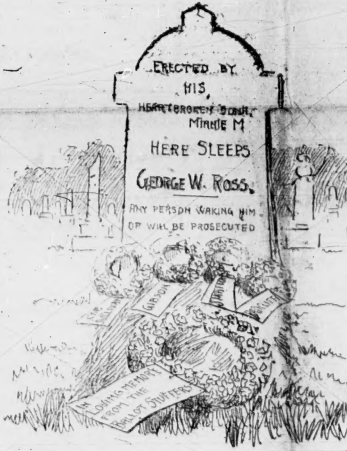 ERECTED BY
HIS,
HEARTBROKEN
MINNIE M
HERE SLEEPS
GEORGE W. ROSS.
ANY PERSON WAKING HIM
UP WILL BE PROSECUTED
IN LOVING MEMORY
FROM THE
BALLOT STUFFERS